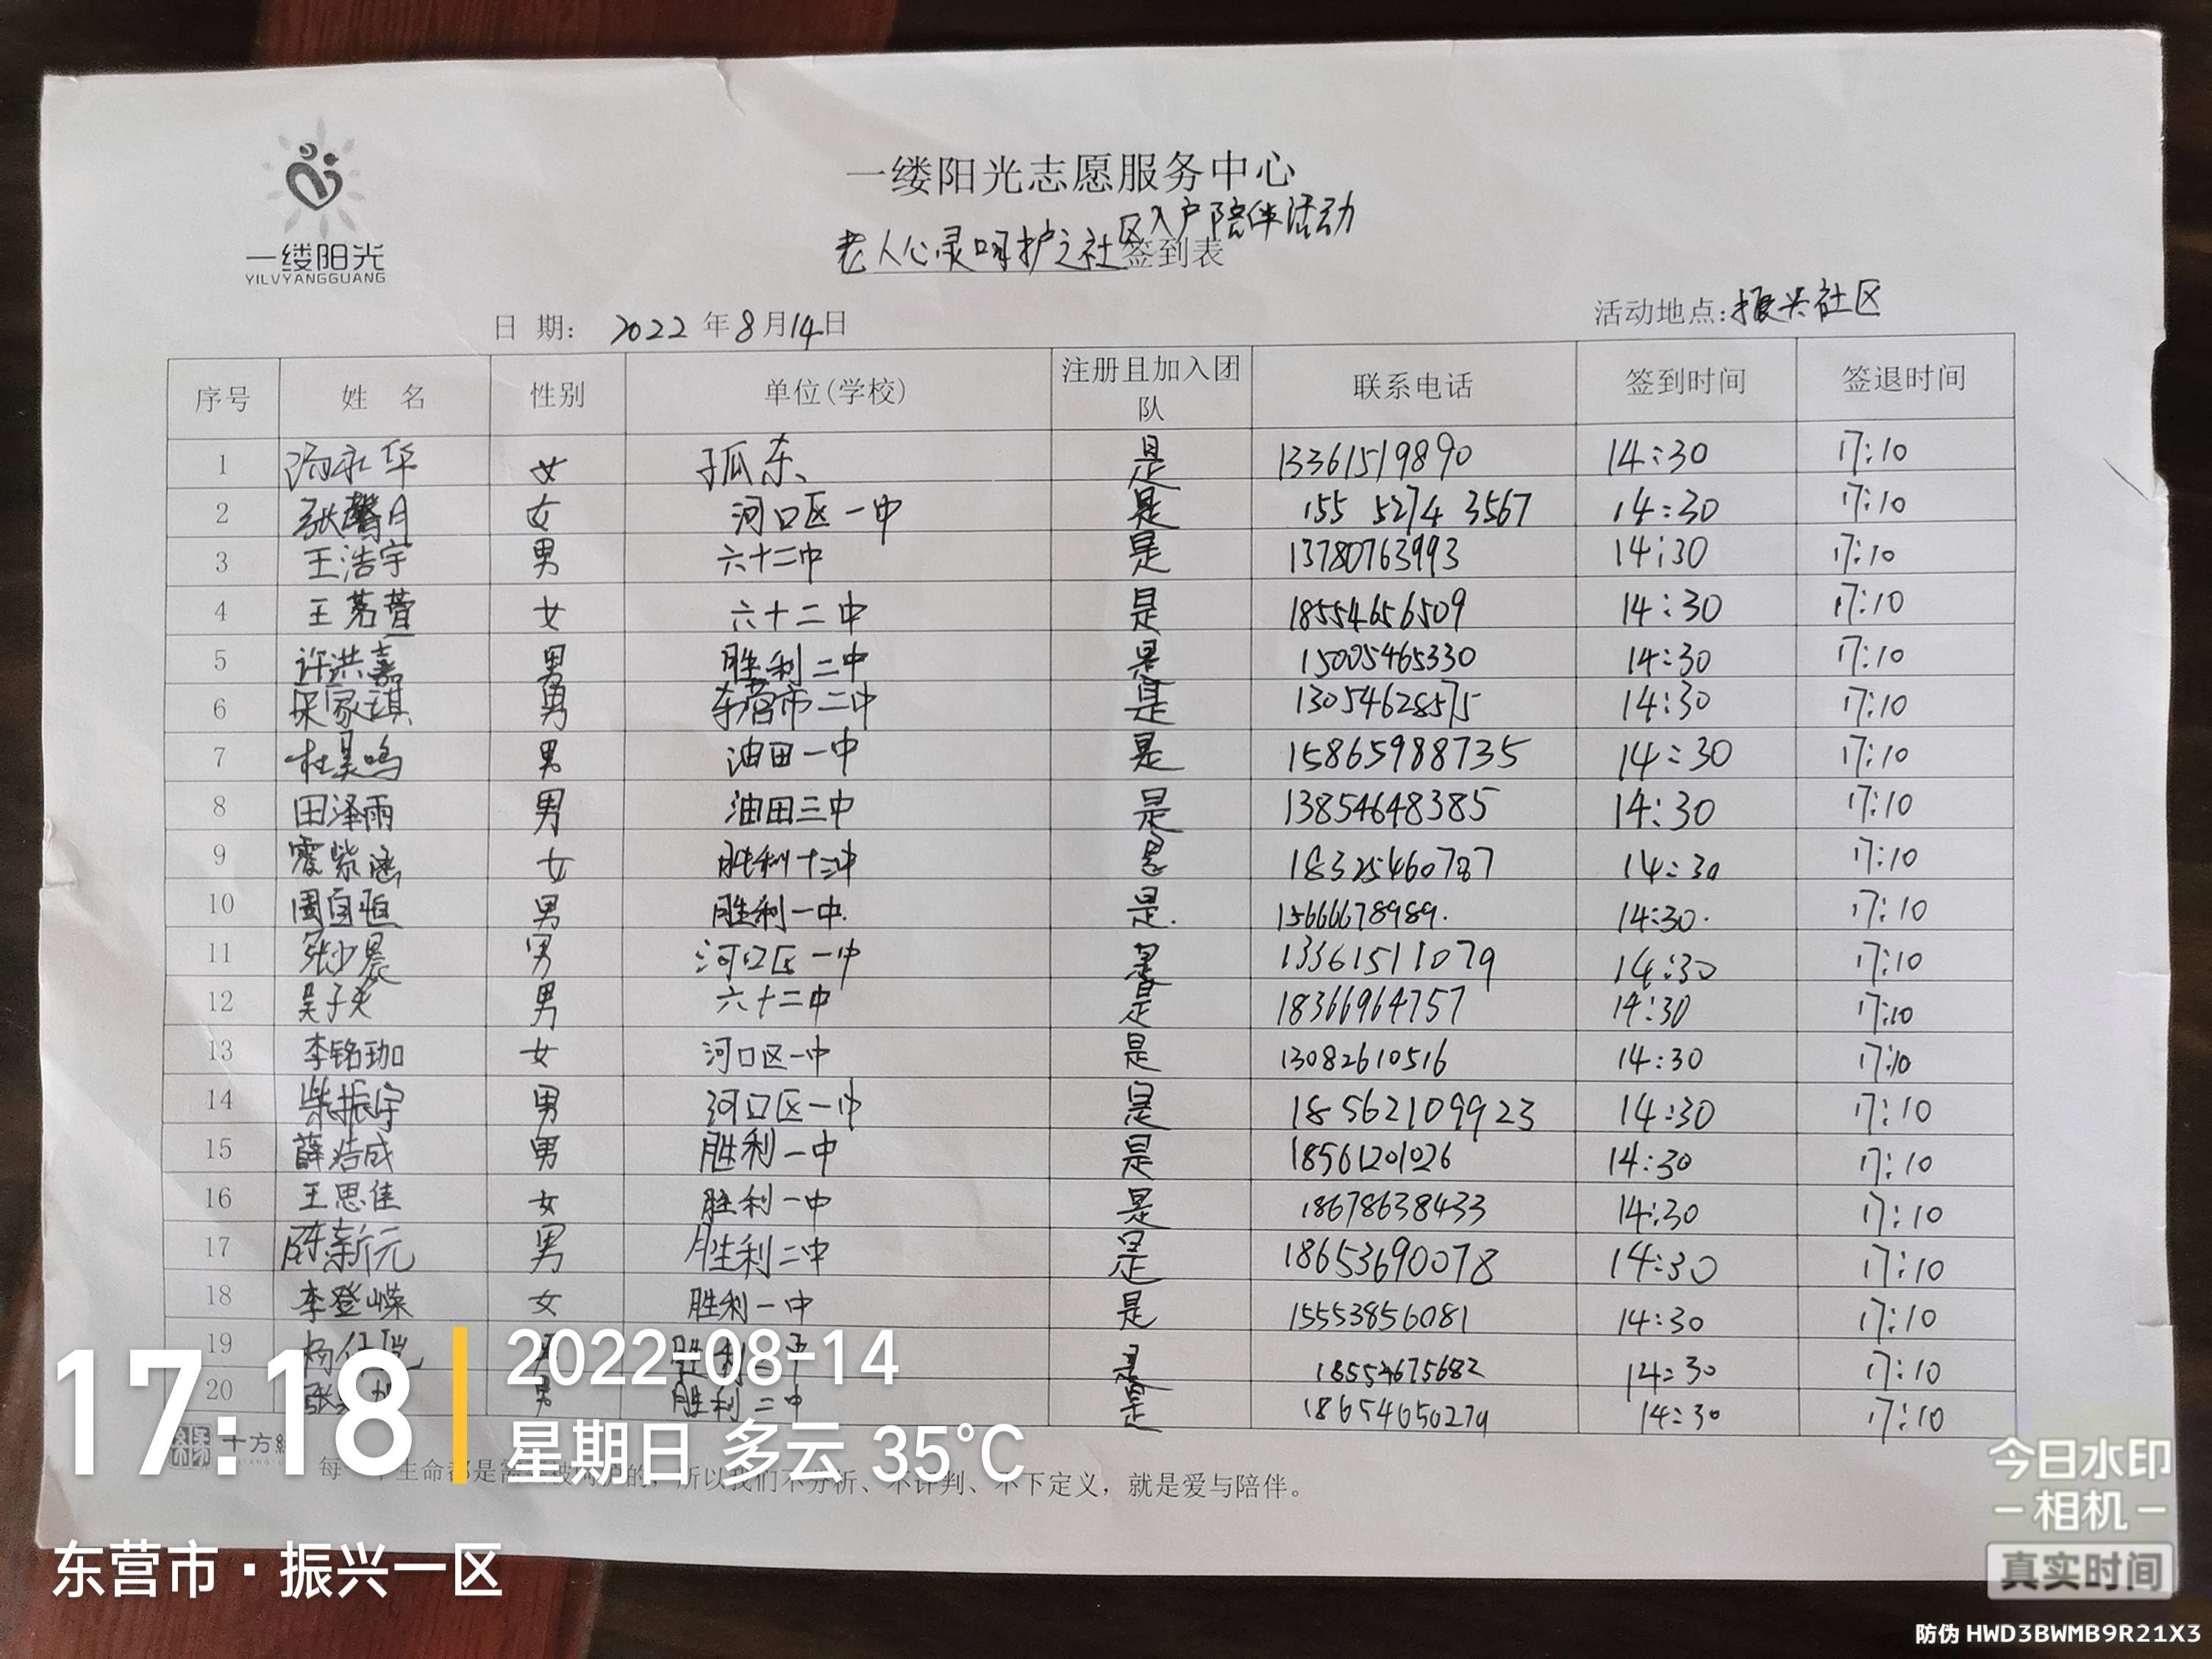 一缕阳光
YILVYANGGUANG
一缕阳光志愿服务中心
老人心灵呵护之社区入户陪伴活动签到表
日 期： 2022 年 8 月 14 日
活动地点：振兴社区
序号 姓 名 性别 单位(学校) 注册且加入团队 联系电话 签到时间 签退时间
1 永华 女 孤东 是 13361519890 14:30 17:10
2 张馨月 女 河口区一中 是 155 5274 3567 14:30 17:10
3 王浩宇 男 六十二中 是 13780763993 14:30 17:10
4 王茗萱 女 六十二中 是 18554656509 14:30 17:10
5 许洪嘉 男 胜利二中 是 15005465330 14:30 17:10
6 家琪 男 东营市二中 是 13054628575 14:30 17:10
7 杜昊鸣 男 油田一中 是 15865988735 14:30 17:10
8 田泽雨 男 油田三中 是 13854648385 14:30 17:10
9 紫涵 女 胜利十二中 是 18325460787 14:30 17:10
10 周自恒 男 胜利一中. 是. 15666678989. 14:30. 17:10
11 张少晨 男 河口区一中 是 13361511079 14:30 17:10
12 吴子 男 六十二中 是 18366964757 14:30 17:10
13 李铭珈 女 河口区一中 是 13082610516 14:30 17:10
14 柴振宇 男 河口区一中 是 18562109923 14:30 17:10
15 薛浩成 男 胜利一中 是 18561201026 14:30 17:10
16 王思佳 女 胜利一中 是 18678638433 14:30 17:10
17 陈新元 男 胜利二中 是 18653690078 14:30 17:10
18 李登嵘 女 胜利一中 是 15553856081 14:30 17:10
19 杨 胜利 是 18554675682 14:30 17:10
20 张 男 胜利二中 是 18654650279 14:30 17:10
十方
每 生命都是 的，所以我们不分析、不评判、不下定义，就是爱与陪伴。
17:18
2022-08-14
星期日 多云 35°C
东营市·振兴一区
今日水印
-相机-
真实时间
防伪 HWD3BWMB9R21X3